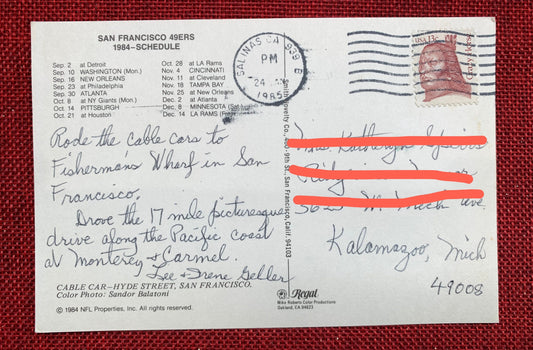 SAN FRANCISCO 49ERS
1984—SCHEDULE
Sep. 2 at Detroit
Sep. 10 WASHINGTON (Mon.)
Sep. 16 NEW ORLEANS
Sep. 23 at Philadelphia
Sep. 30 ATLANTA
Oct. 8 at NY Giants (Mon.)
Oct. 14 PITTSBURGH
Oct. 21 at Houston
Oct. 28 at LA Rams
Nov. 4 CINCINNATI
Nov. 11 at Cleveland
Nov. 18 TAMPA BAY
Nov. 25 at New Orleans
Dec. 2 at Atlanta
Dec. 8 MINNESOTA (Sat.)
Dec. 14 LA RAMS
SALINAS CA 939
PM
24
1985
USA 13c
Crazy Horse
Rode the cable cars to
Fishermans Wharf in San
Francisco.
Drove the 17 mile picturesque
drive along the Pacific coast
at Monterey & Carmel.
Lee & Irene Geller
CABLE CAR—HYDE STREET, SAN FRANCISCO.
Color Photo: Sandor Balatoni
© 1984 NFL Properties, Inc. All rights reserved.
Smith Novelty Co., 460-9th St., San Francisco, Calif. 94103
Kalamazoo, Mich
49008
Regal
Mike Roberts Color Productions
Oakland, CA 94623